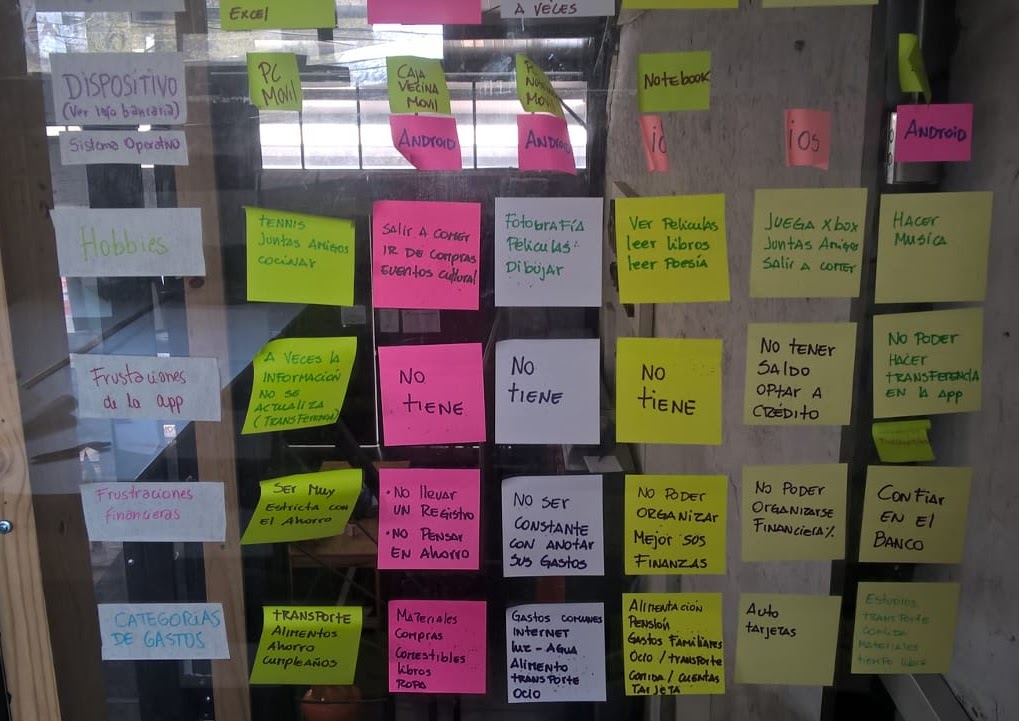 EXCEL
A VECES
DISPOSITIVO
(Ver info bancaria)
PC
MOVIL
CAJA
VECINA
MOVIL
MOVIL
NOTEBOOK
Sistema Operativo
ANDROID
ANDROID
iOS
ANDROID
Hobbies
TENNIS
JUNTAS AMIGOS
COCINAR
SALIR A COMER
IR DE COMPRAS
EVENTOS CULTURAL
FOTOGRAFÍA
PELICULAS
DIBUJAR
Ver Películas
leer libros
leer Poesía
JUEGA XBOX
JUNTAS AMIGOS
SALIR A COMER
HACER
MUSICA
Frustaciones
de la app
A VECES LA
INFORMACIÓN
NO SE
ACTUALIZA
(TRANSFERENCIA)
NO
TIENE
NO
TIENE
NO
TIENE
NO TENER
SALDO
OPTAR A
CRÉDITO
NO PODER
HACER
TRANSFERENCIA
EN LA APP
Frustraciones
Financieras
SER MUY
ESTRICTA CON
EL AHORRO
• NO llevar
UN REGISTRO
• NO PENSAR
EN AHORRO
NO SER
CONSTANTE
CON ANOTAR
SUS GASTOS
NO PODER
ORGANIZAR
MEJOR SUS
FINANZAS
NO PODER
ORGANIZARSE
FINANCIERA%
CONFIAR
EN EL
BANCO
CATEGORÍAS
DE GASTOS
TRANSPORTE
ALIMENTOS
AHORRO
CUMPLEAÑOS
MATERIALES
COMPRAS
COMESTIBLES
LIBROS
ROPA
GASTOS COMUNES
INTERNET
LUZ - AGUA
ALIMENTO
TRANSPORTE
OCIO
ALIMENTACIÓN
PENSIÓN
GASTOS FAMILIARES
OCIO / TRANSPORTE
COMIDA / CUENTAS
TARJETA
AUTO
TARJETAS
ESTUDIOS
TRANSPORTE
COMIDA
MATERIALES
TIEMPO LIBRE